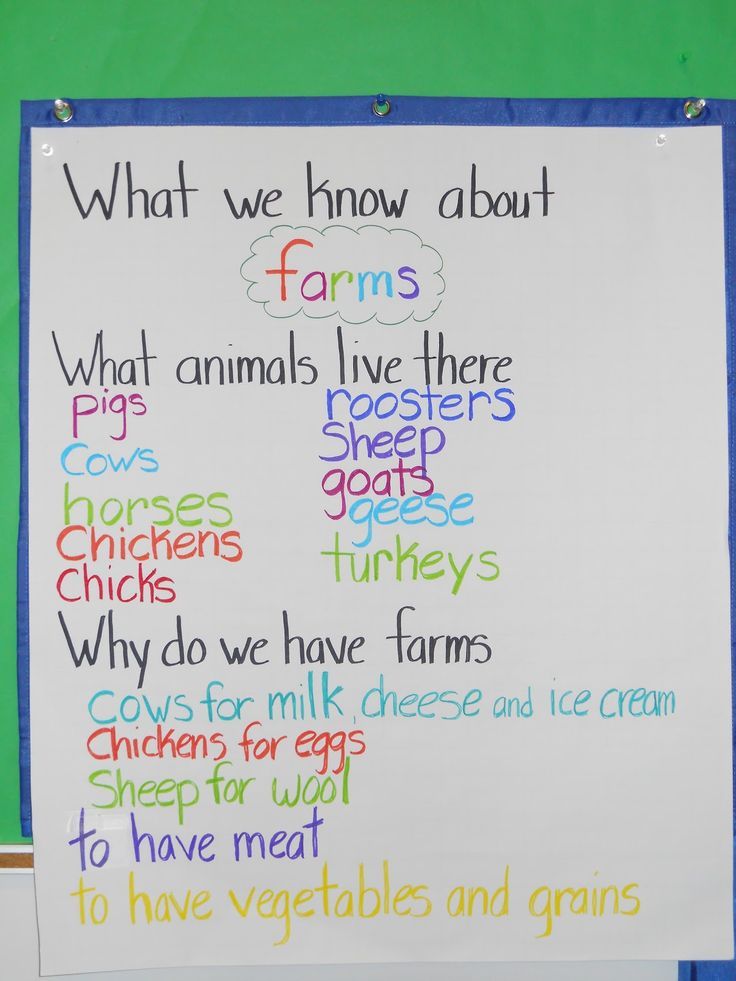 What we know about
farms
What animals live there
pigs
Cows
horses
Chickens
Chicks
roosters
Sheep
goats
geese
turkeys
Why do we have farms
Cows for milk, cheese and ice cream
Chickens for eggs
Sheep for wool
to have meat
to have vegetables and grains